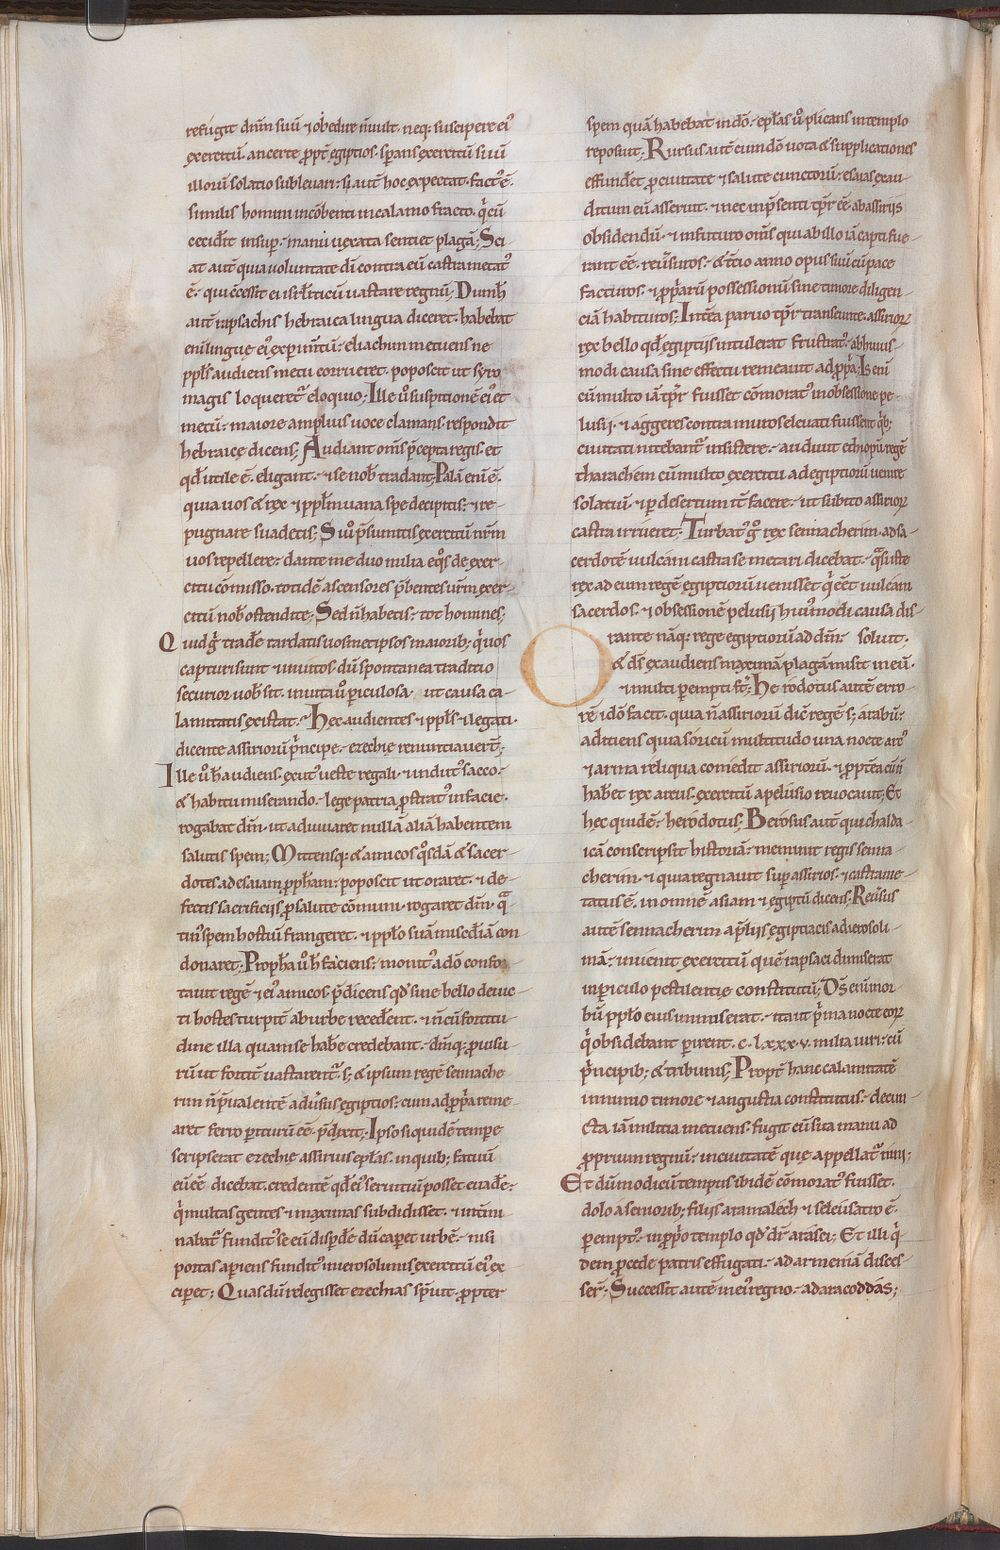 refugit dnm suu & obedire n uult. neq; suscipere ei'
exercitu. an certe ppt egiptios. sperans exercitu suu
illoru solatio subleuari: si aut hoc expectat. fact' e.
similis homini incubenti in calamo fracto. qi cu
ceciderit insup. manu uexata sentiet plaga; Sci
at aut quia uoluntate di contra eu castra metat'
e. qui cessit ei isrliticu uastare regnu; Dum h
aut rapsachis hebraica lingua diceret. habebat
eni lingue ei' experimtu: eliachim metuens ne
ppls audiens metu correueret. poposcit ut syro
magis loqueret eloquio; Ille u suspitione ei' et
metu. maiore amplius uoce clamans respondit
hebraice dicens; Audiant oms pcepta regis. et
qd utile e. eligant. & se nob tradant. Pala eni e.
quia uos & rex & ppl'm uana spe decipitis; & re-
pugnare suadetis; Si u psumitis exercitu nrm
uos repellere: dante me duo milia eqos de exer-
citu comisso. totide ascensores pbentes urm exer-
citu nob ostendite; Sed n habetis. tot homines;
Quid g tradere tardatis uosmetipsos maiorib; qi uos
capturi sunt & inuitos. du spontanea traditio
securior uob sit. inuita u periculosa ut causa ca-
lamitatis existat. Hec audientes & ppls & legati.
dicente assirioru principe. ezechie renuntiauert;
Ille u h audiens. exut' ueste regali. & indut' sacco.
& habitu miserando. lege patria pstrat' in facie.
rogabat dnm. ut adiuuaret nulla alia habentem
salutis spem; Mittensq; & amicos qosda & sacer-
dotes ad esaiam ppham: poposcit ut oraret. & de-
fectis sacrificiis p salute comuni. rogaret dnm. qa
tin' spem hostiu frangeret. & pplo sua misedia con
donaret; Propha u h faciens: monit' a do confor-
tauit rege & ei' amicos. pdicens qd sine bello deuic-
ti hostes turpit ab urbe recederent. & n cu fortitu-
dine illa qua inse habere credebant. dmq; puisu-
ru ut fortit uastarent. s; & ipsum rege sennache
rim n pualente aduersus egiptios: cum ad ppria reme-
aret ferro periturum ee. pdixit; Ipso siquide tempe
scripserat ezechie assirius eplas. inquib; fatuu
eu ee dicebat. credente qd ei' seruitiu posset euadere:
qi multas gentes & maximas subdidisset. & intmi
nabat' funditus se eu disperdere du caperet urbe. nisi
portas aperiens funditus ierosolimis exercitu ei' ex
ciperet; Quas du relegisset ezechias spuit. ppter
spem qua habebat in do. eplas u plicans in templo
reposuit; Rursus aut eunde do uota & supplicationes
effunderet p ciuitate & salute cunctoru: esaias exau-
ditum eu asseruit. & nec inpsenti tpr ee ab assiriis
obsidendu. & in futuro oms qui ab illo ia capti fue-
rant ee. reuersuros. & tcio anno opus suu cu pace
facturos. & ppriaru possessionu sine timore diligen-
cia habituros; Interea paruo tpr transeunte. assirior
rex bello qd egiptiis intulerat frustrat'. ab huius-
modi causa sine effectu remeauit ad ppria; Is eni
cu multo ia tpr fuisset comorat' in obsessione pe-
lusii. & aggeres contra muros eleuati fuissent qib;
ciuitati nitebant' insistere. audiuit ethiopu rege
tharachem cu multo exercitu ad egiptioru uenire
solatiu. & per desertum iter facere. ut subito assirior
castra irrueret; Turbat' g rex sennacherim. ad sa-
cerdote uulcani castra se metari dicebat. qasi iste
rex ad eum rege egiptioru uenisset qi eet uulcani
sacerdos. & obsessione pelusii hui'modi causa dis-
Orante naq; rege egiptioru ad dnm: soluit.
& ds exaudiens maxima plaga misit in eu.
& multi perempti st; Herodotus aute erro-
re ido facit. quia n assirioru dic rege s; arabu:
aditiens quia soricu multitudo una nocte arc'
& arma reliqua comedit assirioru. & pptea cu n
haberet rex arcus. exercitu a pelusio reuocauit; Et
hec quide. herodotus; Berosus aut qui chalda-
ica conscripsit historia: meminit regis senna-
cherim. & quia regnauit super assirios. & castrame-
tatus e. in omne asiam & egiptu dicens. Reuersus
aute sennacherim a preliis egiptiacis ad ierosoli-
ma: inuenit exercitu que rapsaci dimiserat
in periculo pestilentie constitutu; Ds eni mor-
bu pplo eius immiserat. ita ut prima nocte eor
qi obsidebant perirent. c.lxxx.v. milia uiri: cu
principib; & tribunis; Propt hanc calamitate
in nimio timore & angustia constitutus. de cun-
cta ia militia metuens. fugit cu sua manu ad
proprium regnu. in ciuitate que appellat' nini;
Et du modicu tempus ibide comorat' fuisset.
dolo a seniorib; filiis aramalech & seleusaro e.
perempt'. in pprio templo qd dr arasci; Et illi qi
dem p cede patris effugati. ad armenia disces-
ser; Successit aute in ei' regno. adaracoddas;